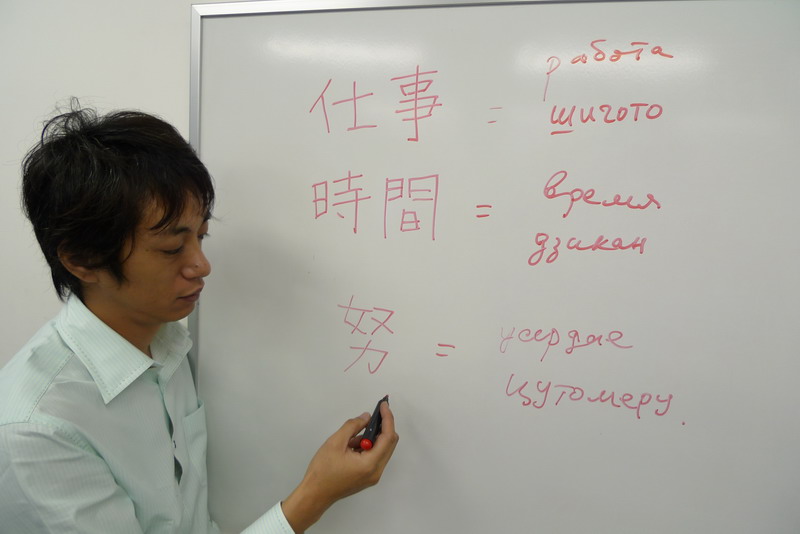 работа
仕事 = шигото
時間 = время
дзикан
努 = усердие
цутомеру.